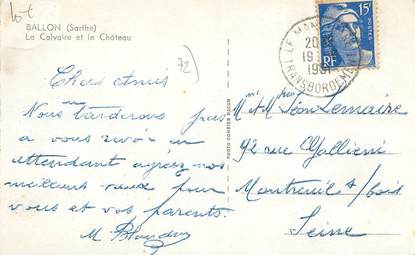 lot
BALLON (Sarthe)
Le Calvaire et le Château
72
15F
POSTES
RF
LE MANS
TRANSBORDEMENT
Chers Amis
Nous ne tarderons pas
a vous revoir en
attendant agréez nos
meilleurs vœux pour
vous et vos parents.
M
PHOTO COMBIER MACON
M et Mme Léon Lemaire
92 rue Gallieni
Montreuil s/ bois
Seine